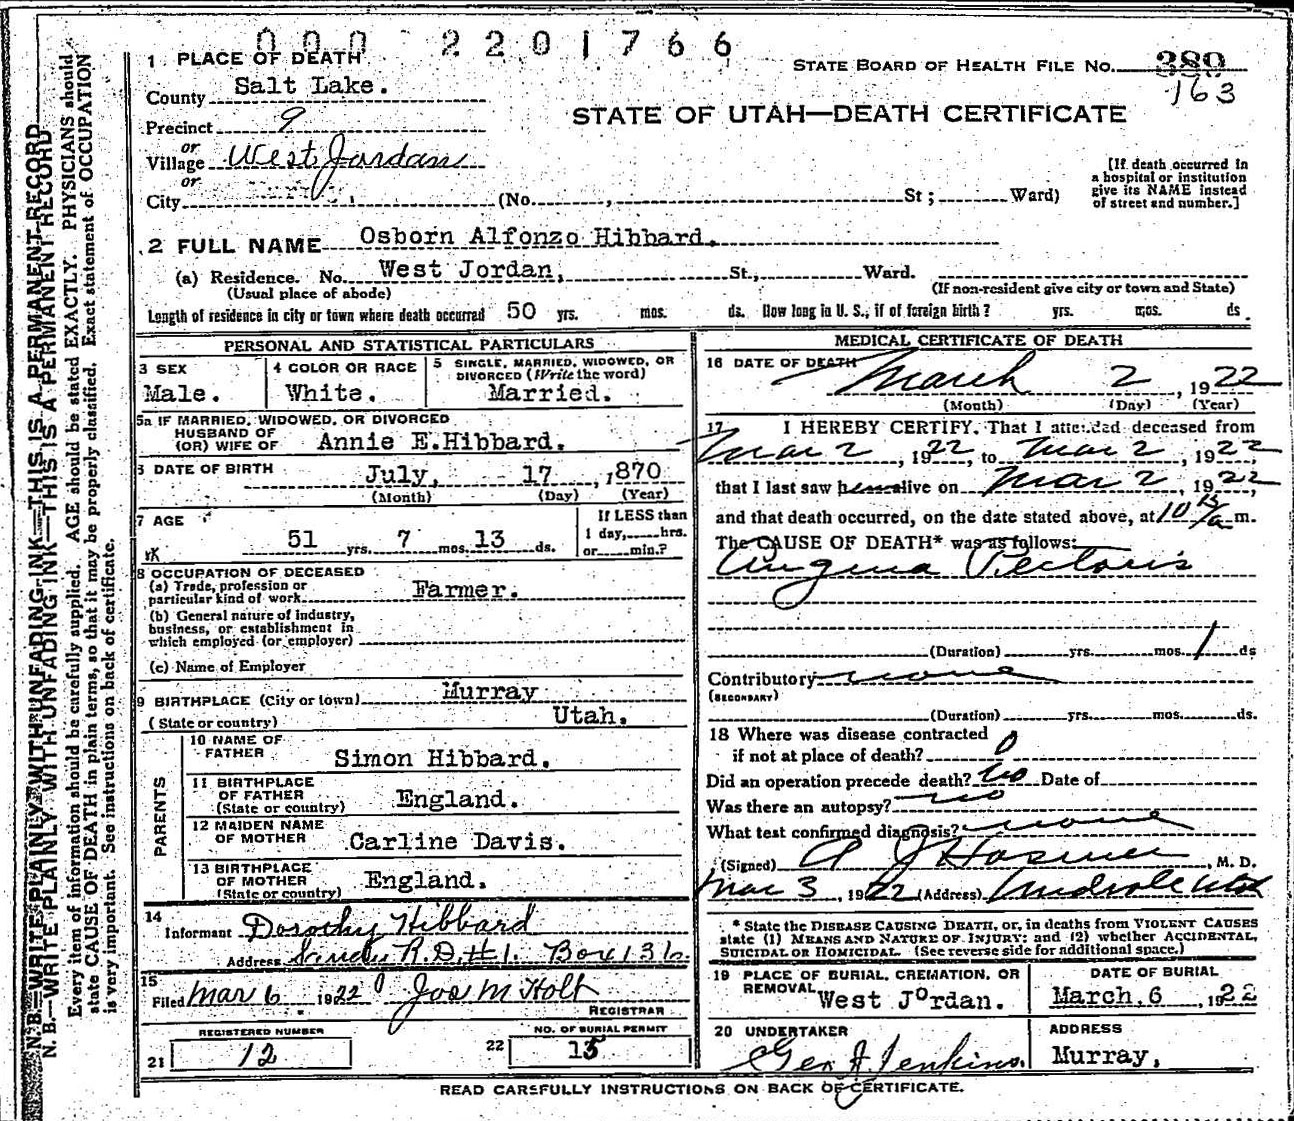 000 2201766
1 PLACE OF DEATH
STATE BOARD OF HEALTH FILE NO. 389
163
County Salt Lake.
STATE OF UTAH—DEATH CERTIFICATE
Precinct 9
or
Village West Jordan
or
City (No. , St ; Ward)
[If death occurred in
a hospital or institution
give its NAME instead
of street and number.]
2 FULL NAME Osborn Alfonzo Hibbard.
(a) Residence. No. West Jordan, St., Ward.
(Usual place of abode) (If non-resident give city or town and State)
Length of residence in city or town where death occurred 50 yrs. mos. ds. How long in U. S., if of foreign birth? yrs. mos. ds.
PERSONAL AND STATISTICAL PARTICULARS
3 SEX
Male.
4 COLOR OR RACE
White.
5 SINGLE, MARRIED, WIDOWED, OR
DIVORCED (Write the word)
Married.
5a IF MARRIED, WIDOWED, OR DIVORCED
HUSBAND OF
(OR) WIFE OF Annie E.Hibbard.
6 DATE OF BIRTH July, 17 , 1870
(Month) (Day) (Year)
7 AGE
51 yrs. 7 mos. 13 ds.
If LESS than
1 day, hrs.
or min.?
8 OCCUPATION OF DECEASED
(a) Trade, profession or
particular kind of work Farmer.
(b) General nature of industry,
business, or establishment in
which employed (or employer)
(c) Name of Employer
9 BIRTHPLACE (City or town) Murray
(State or country) Utah.
PARENTS
10 NAME OF
FATHER Simon Hibbard.
11 BIRTHPLACE
OF FATHER
(State or country) England.
12 MAIDEN NAME
OF MOTHER Carline Davis.
13 BIRTHPLACE
OF MOTHER
(State or country) England.
14
Informant Dorothy Hibbard
Address Sandy R.D.#1. Box 136.
15
Filed Mar 6 1922 Jos M Holt
REGISTRAR
REGISTERED NUMBER
21 12
NO. OF BURIAL PERMIT
22 15
MEDICAL CERTIFICATE OF DEATH
16 DATE OF DEATH March 2 , 1922
(Month) (Day) (Year)
17 I HEREBY CERTIFY, That I attended deceased from
Mar 2 , 1922, to Mar 2 , 1922
that I last saw h alive on Mar 2 , 1922,
and that death occurred, on the date stated above, at 10 15 a m.
The CAUSE OF DEATH* was as follows:
Angina Pectoris
(Duration) yrs. mos. 1 ds
Contributory none
(SECONDARY)
(Duration) yrs. mos. ds.
18 Where was disease contracted
if not at place of death? 0
Did an operation precede death? No Date of
Was there an autopsy? No
What test confirmed diagnosis? none
(Signed) A J Hosmer , M. D.
Mar 3 , 1922 (Address) Midvale Utah
* State the DISEASE CAUSING DEATH, or, in deaths from VIOLENT CAUSES
state (1) MEANS AND NATURE OF INJURY; and (2) whether ACCIDENTAL,
SUICIDAL OR HOMICIDAL. (See reverse side for additional space.)
19 PLACE OF BURIAL, CREMATION, OR
REMOVAL West Jordan.
DATE OF BURIAL
March, 6 , 1922
20 UNDERTAKER
Geo A. Jenkins.
ADDRESS
Murray,
READ CAREFULLY INSTRUCTIONS ON BACK OF CERTIFICATE.
N. B.—WRITE PLAINLY WITH UNFADING INK—THIS IS A PERMANENT RECORD
N. B.—WRITE PLAINLY WITH UNFADING INK—THIS IS A PERMANENT RECORD
Every item of information should be carefully supplied. AGE should be stated EXACTLY. PHYSICIANS should
state CAUSE OF DEATH in plain terms, so that it may be properly classified. Exact statement of OCCUPATION
is very important. See instructions on back of certificate.